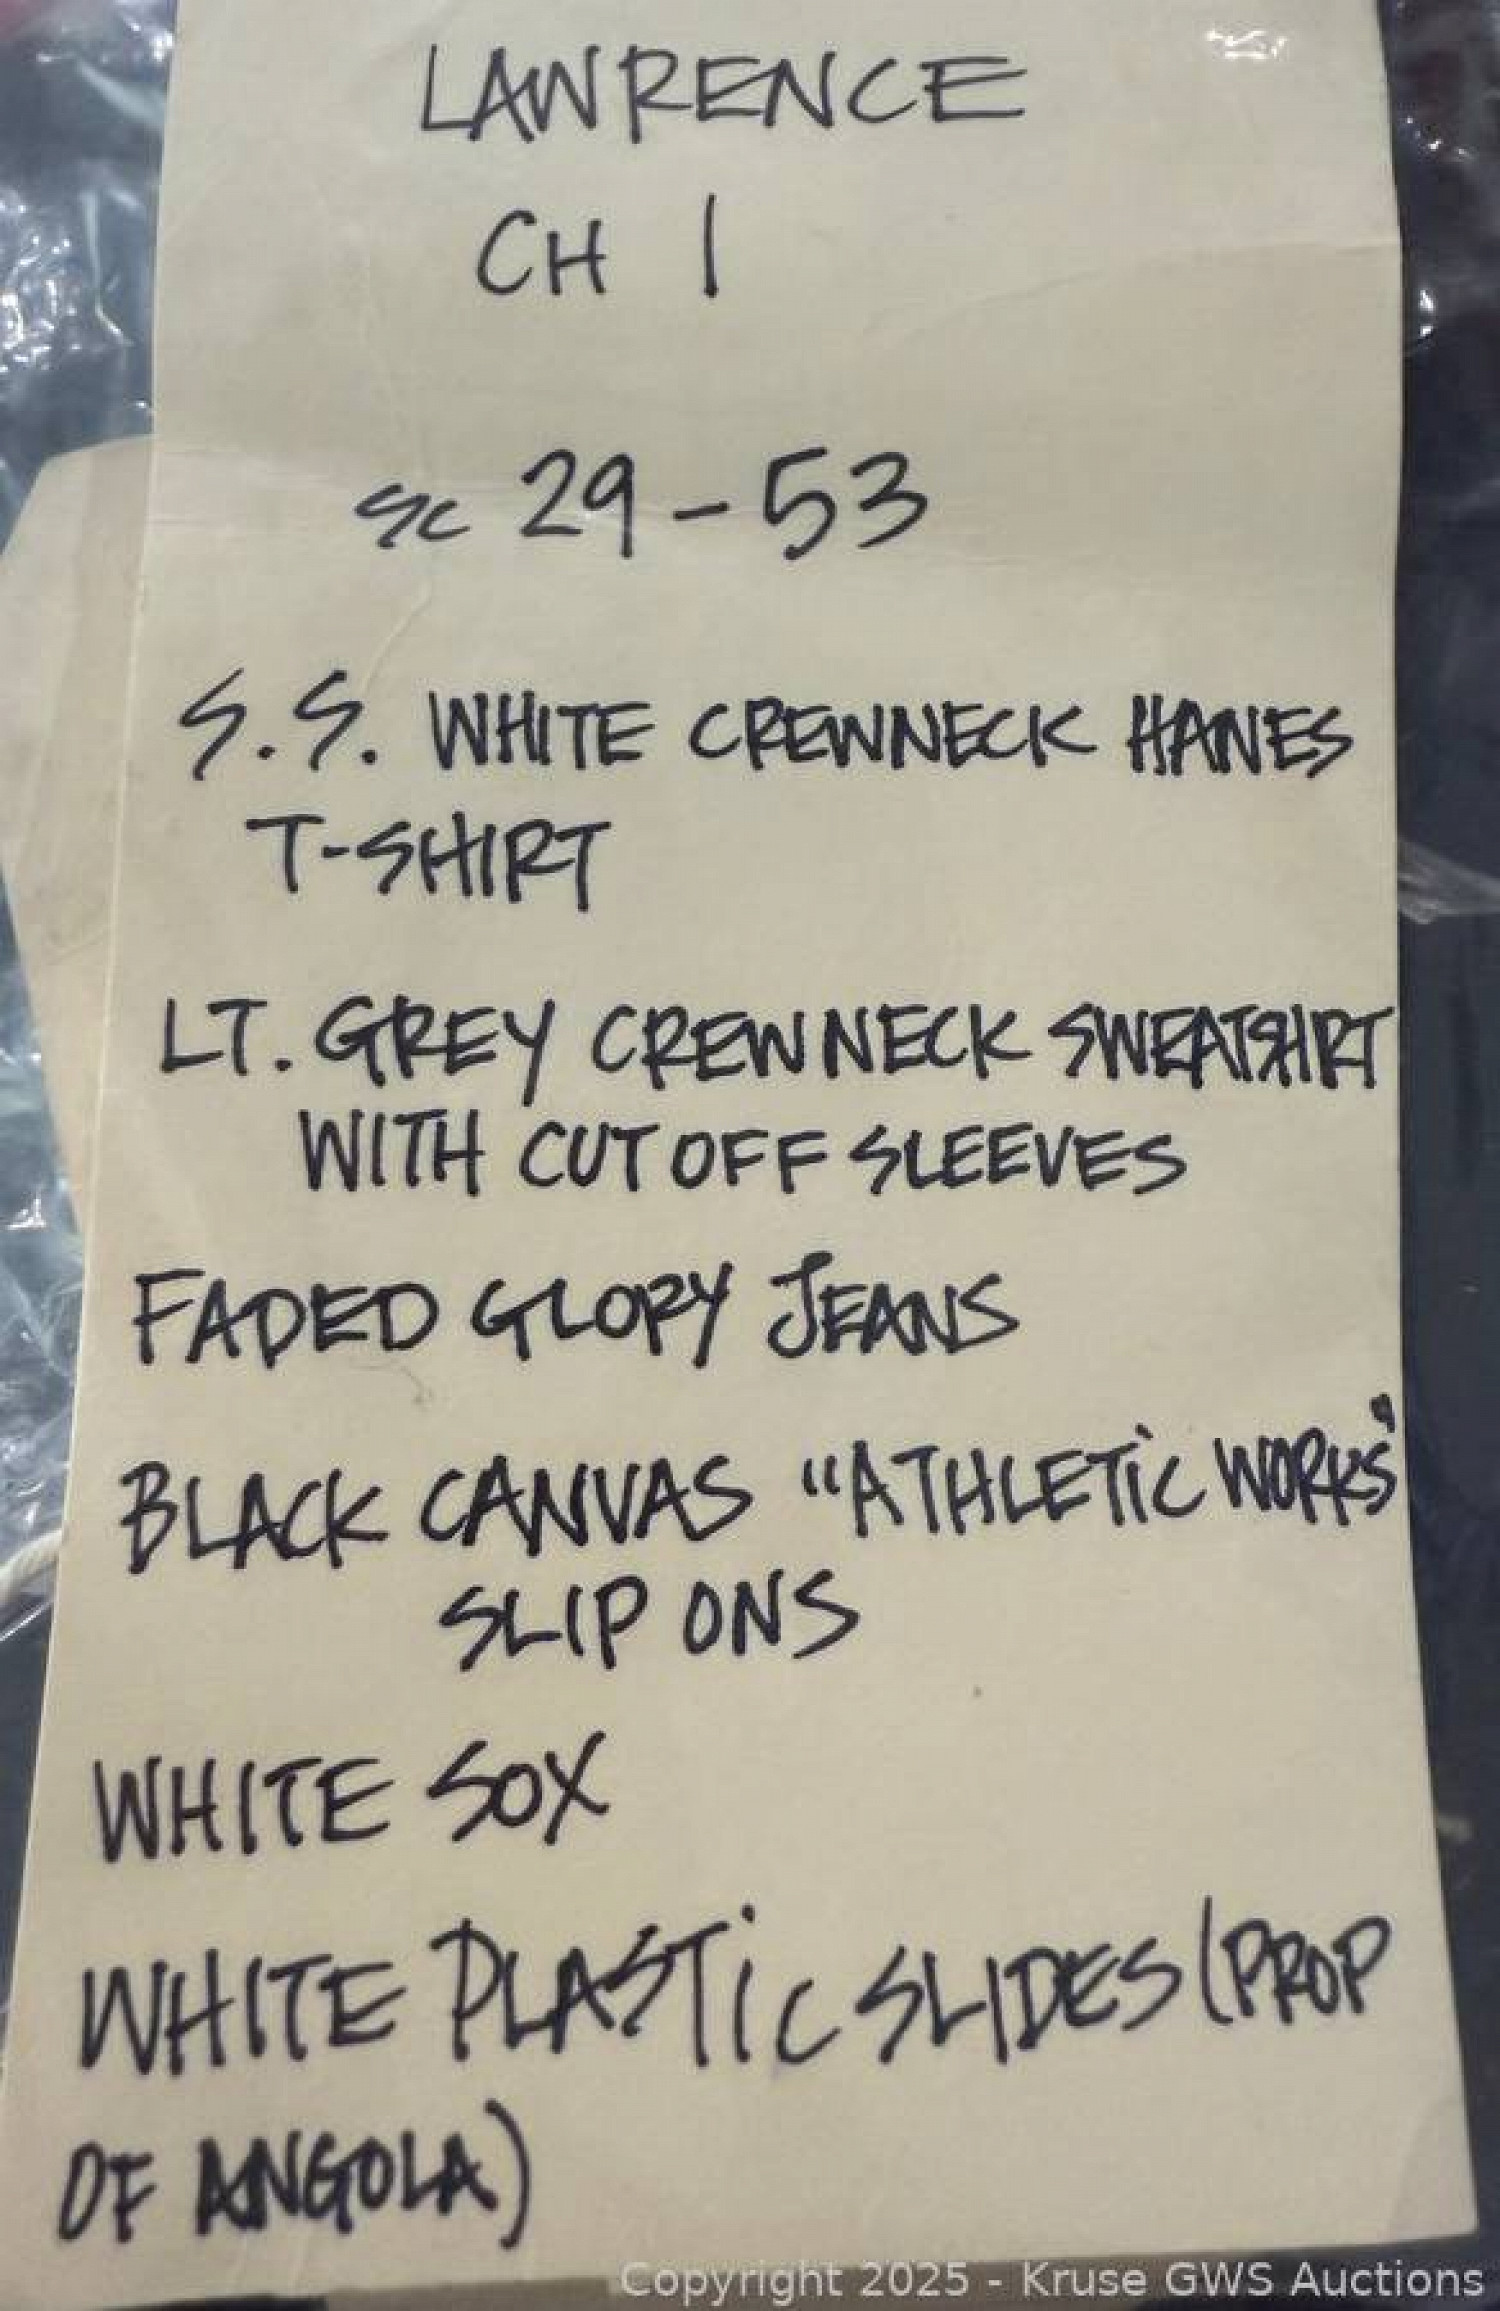 LAWRENCE
CH 1
SC 29-53
S.S. WHITE CREWNECK HANES
T-SHIRT
LT. GREY CREWNECK SWEATSHIRT
WITH CUT OFF SLEEVES
FADED GLORY JEANS
BLACK CANVAS "ATHLETiC WORKS"
SLIP ONS
WHITE SOX
WHITE PLASTiC SLIDES (PROP
OF ANGOLA)
Copyright 2025 - Kruse GWS Auctions